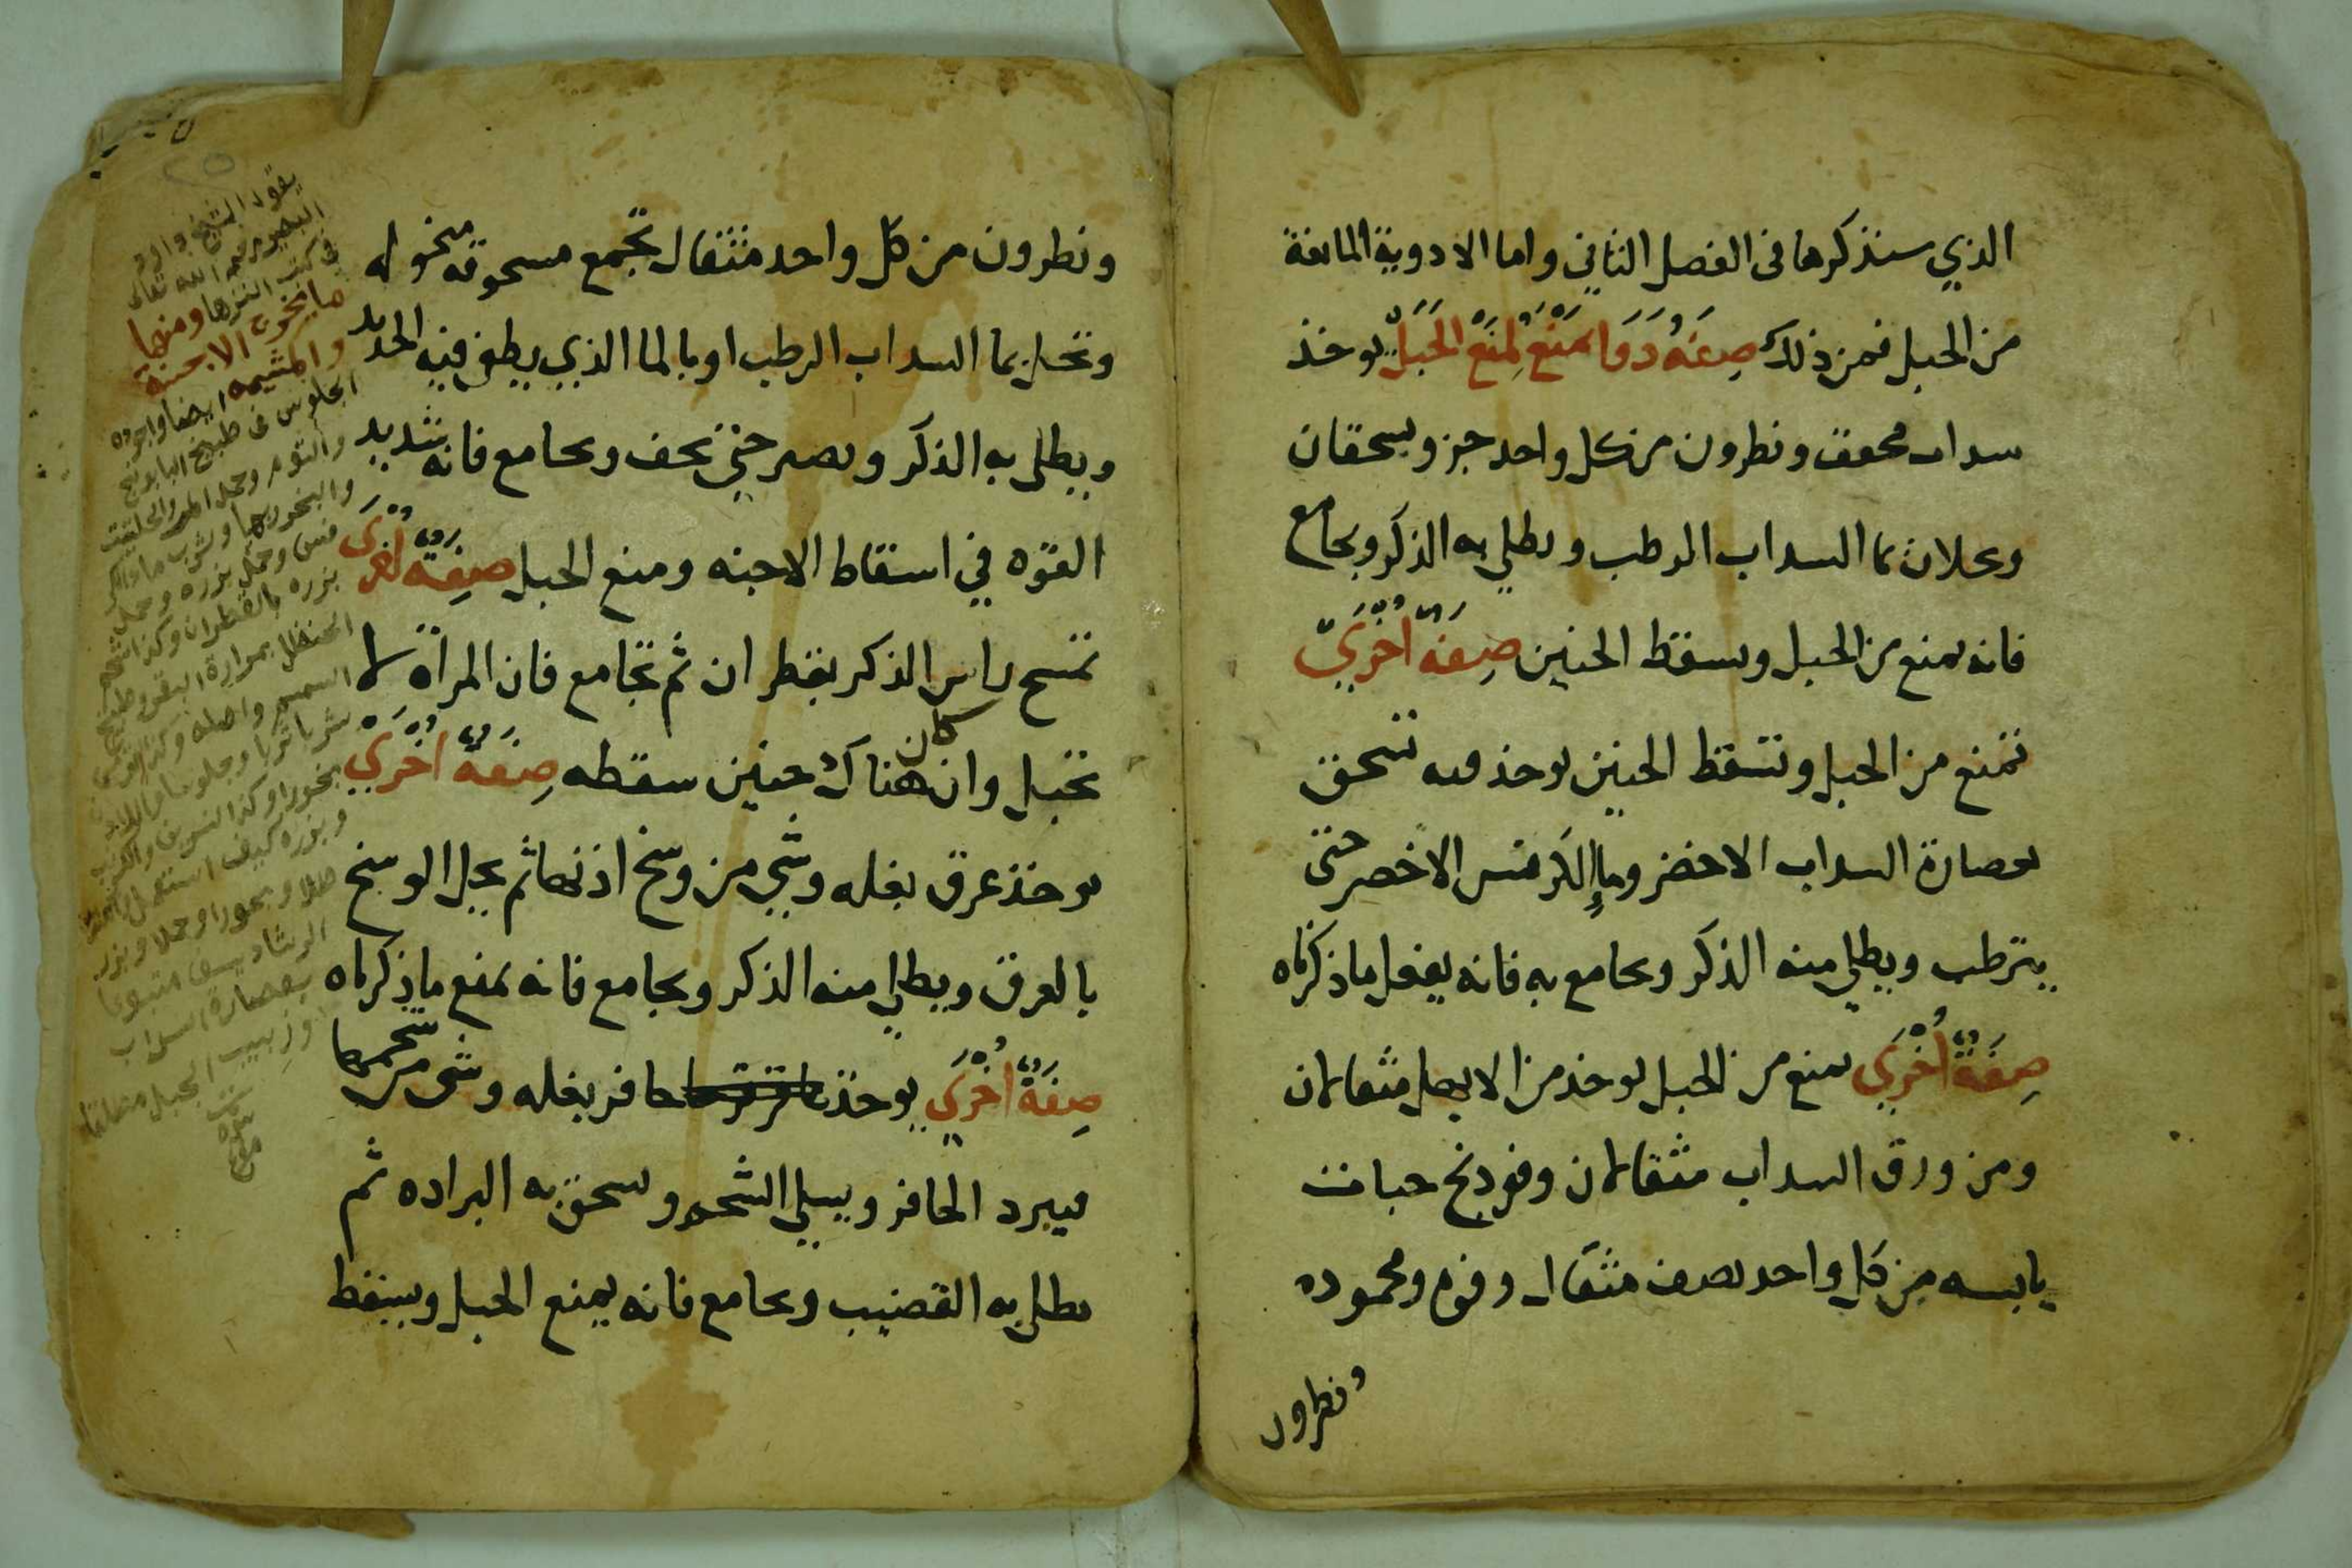 الذي سنذكرها فى الفصل الثاني واما الادوية المانعة
من الحبل فمن ذلك صفة دوا يمنع لمنع الحبل يوخذ
سداب مجفف ونطرون من كل واحد جز ويسحقان
ويحلان بما السداب الرطب ويطلي به الذكر ويجامع
فانه يمنع من الحبل ويسقط الجنين صفة اخري
تمنع من الحبل وتسقط الجنين يوخذ تسحق
بعصارة السداب الاخضر وما الكرفس الاخضر حتى
يترطب ويطلي منه الذكر ويجامع به فانه يفعل ما ذكرناه
صفة اخري يمنع من الحبل يوخذ من الابهل مثقالان
ومن ورق السداب مثقالان وفودنج حبات
يابسه من كل واحد نصف مثقال وفوم ومحموده
ونطرون
ونطرون من كل واحد مثقال تجمع مسحوقه منخوله
وتحل بما السداب الرطب او بالما الذي يطفى فيه الحديد
ويطلى به الذكر ويصبر حتى يجف ويجامع فانه شديد
القوه في اسقاط الاجنه ومنع الحبل صفة اخرى
تمسح راس الذكر بقطران ثم تجامع فان المراة لا
تحبل وان كان هناك جنين سقطه صفة اخري
يوخذ عرق بغله وشي من وسخ اذنها ثم يحل الوسخ
بالعرق ويطلي منه الذكر ويجامع فانه يمنع ما ذكرناه
صفة اخري يوخذ حافر بغله وشى من شحمها
فيبرد الحافر ويسلي الشحم ويسحق به البراده ثم
يطلي به القضيب ويجامع فانه يمنع الحبل ويسقط
٢٥
يقول الشيخ داود
البصير رحمه الله تعالى
فى كتب النزهة ومنها
ما يخرج الاجنة
والمشيمه ايضا واجوده
الجلوس فى طبيخ البابونج
والثوم وحمل المر والحلتيت
والبخور بها وشرب ما الكر
فس وحمل بزره وحمل
بزره بالقطران وكذا شحم
الحنظل بمرارة البقر وطبيخ
السمسم واصله وكذا
شربا وجلوسا
بخورا وكذا النسرين
وبزره كيف استعمل
طلا وبخورا وحملا وبزر
الرشاد يسقى متبوعا
بعصارة السداب
وزبيب الجبل مطلقا